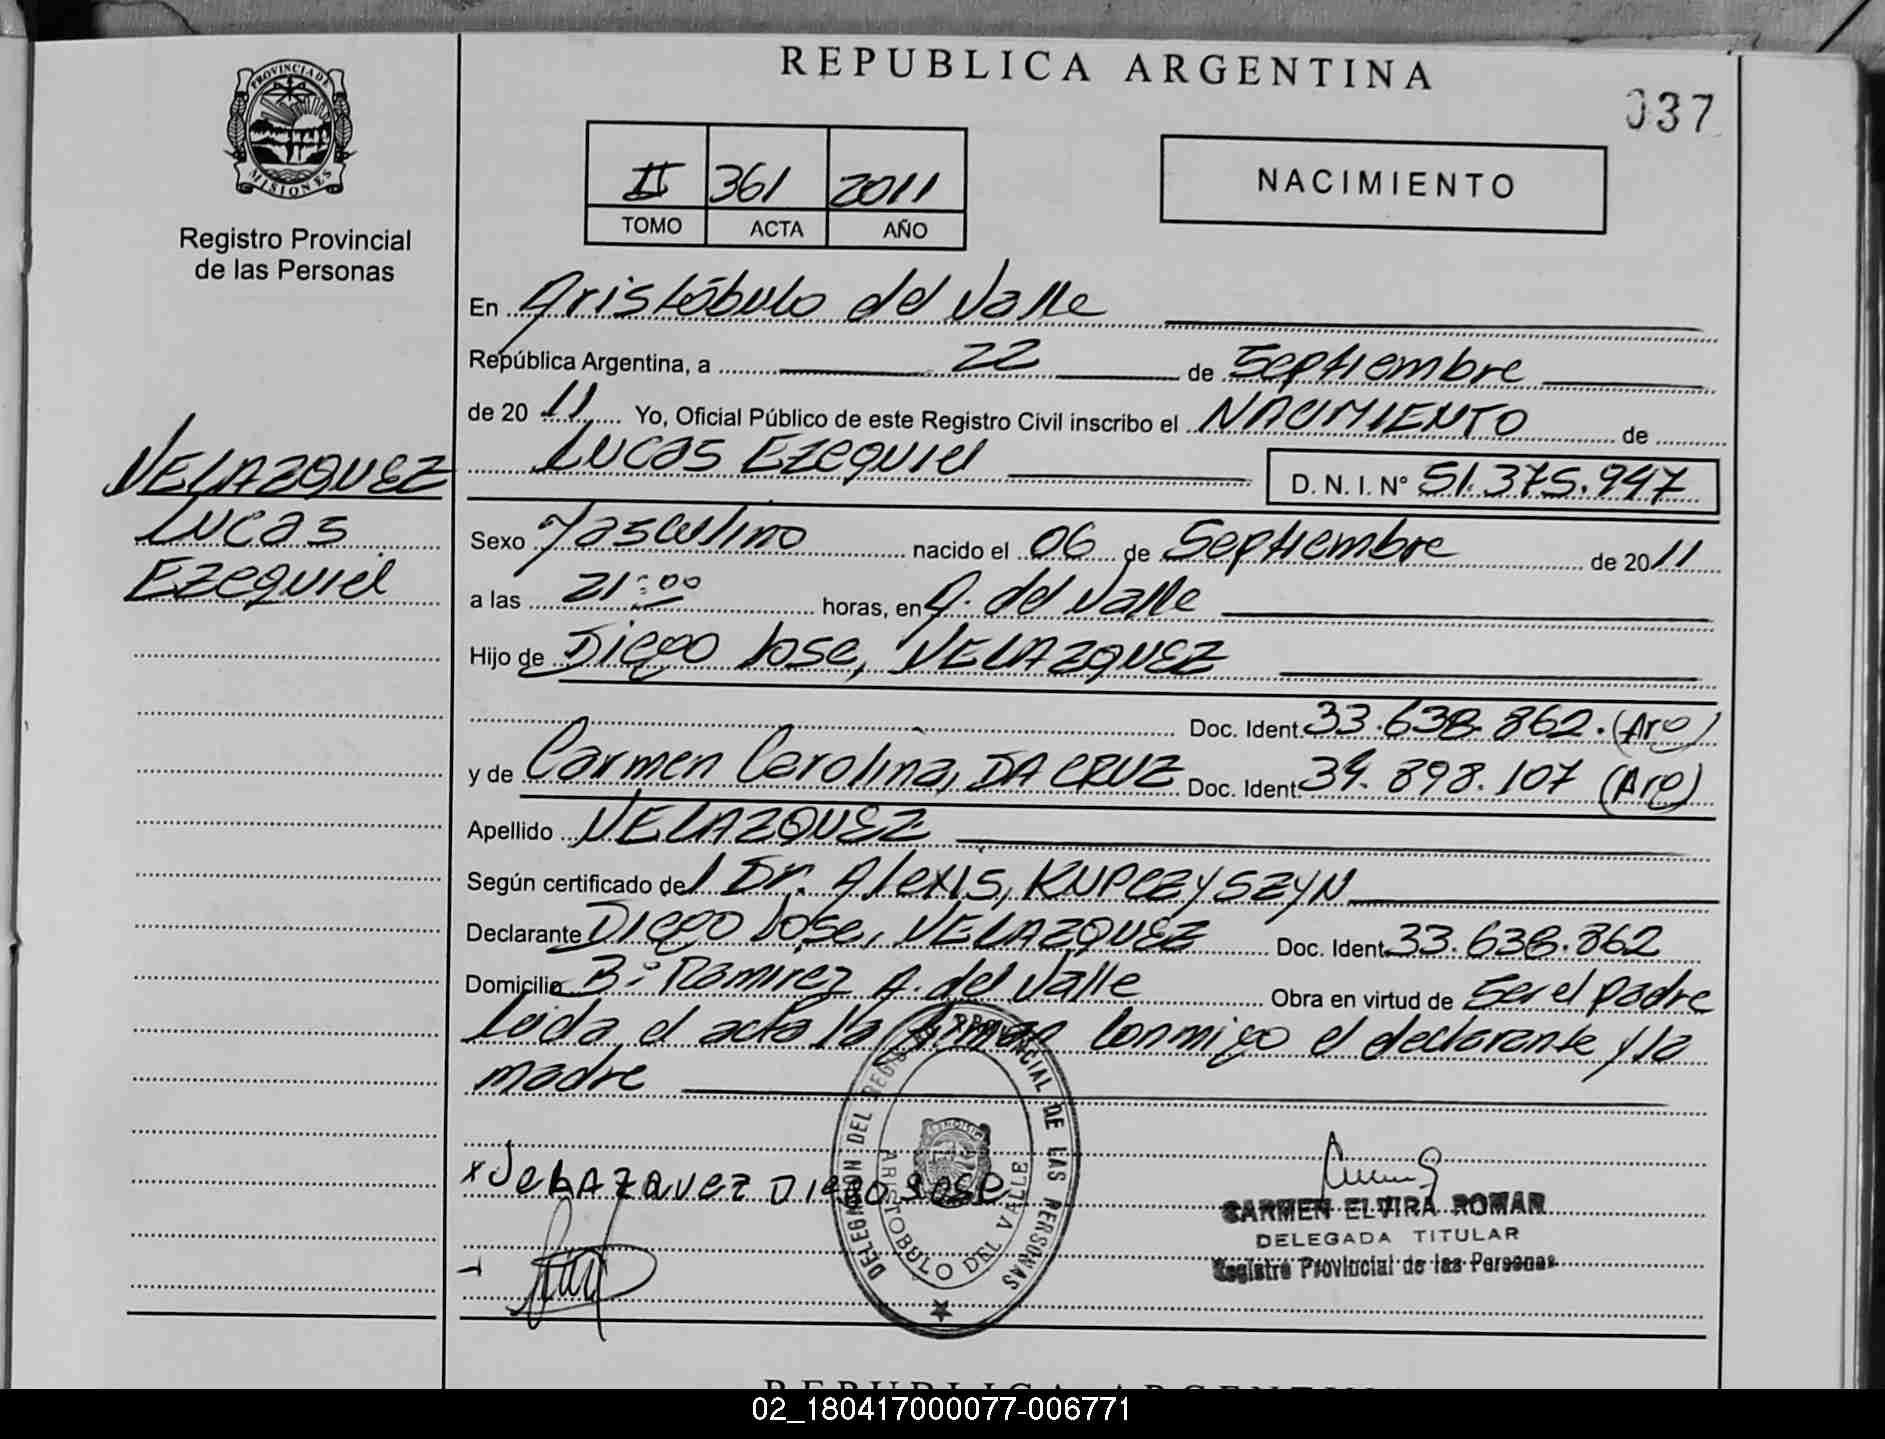 REPUBLICA ARGENTINA
037
PROVINCIA DE
MISIONES
Registro Provincial
de las Personas
II 361 2011
TOMO ACTA AÑO
NACIMIENTO
En Aristóbulo del Valle
República Argentina, a 22 de Septiembre
de 20 11 Yo, Oficial Público de este Registro Civil inscribo el NACIMIENTO de
Lucas Ezequiel D.N.I. Nº 51.375.947
VELAZQUEZ
Lucas
Ezequiel
Sexo Masculino nacido el 06 de Septiembre de 20 11
a las 21:00 horas, en A. del Valle
Hijo de Diego Jose, VELAZQUEZ
Doc. Ident. 33.638.862. (Arg)
y de Carmen Carolina, DA CRUZ Doc. Ident. 39.898.107 (Arg)
Apellido VELAZQUEZ
Según certificado del Dr. Alexis, KUPCZYSZYN
Declarante Diego Jose, VELAZQUEZ Doc. Ident. 33.638.862
Domicilio Bº Ramirez A. del Valle Obra en virtud de Ser el padre
Leida el acta la firman conmigo el declarante y la
madre
DELEGACION DEL REGISTRO PROVINCIAL DE LAS PERSONAS
ARISTOBULO DEL VALLE
x VeLAZQueZ DIegO JOSe
CARMEN ELVIRA ROMAN
DELEGADA TITULAR
Registro Provincial de las Personas
REPUBLICA ARGENTINA
02_180417000077-006771